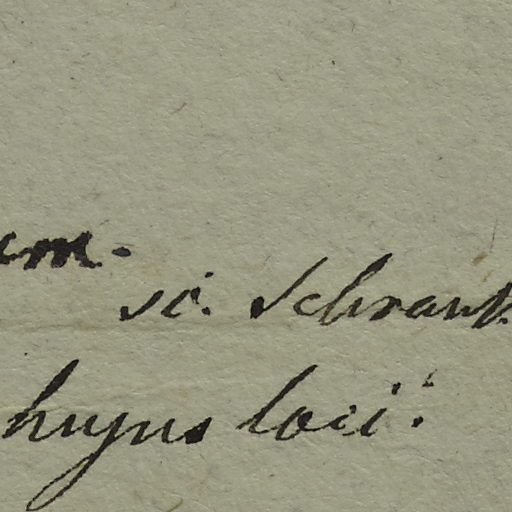 um.
sc. Schrank
hujus loci.